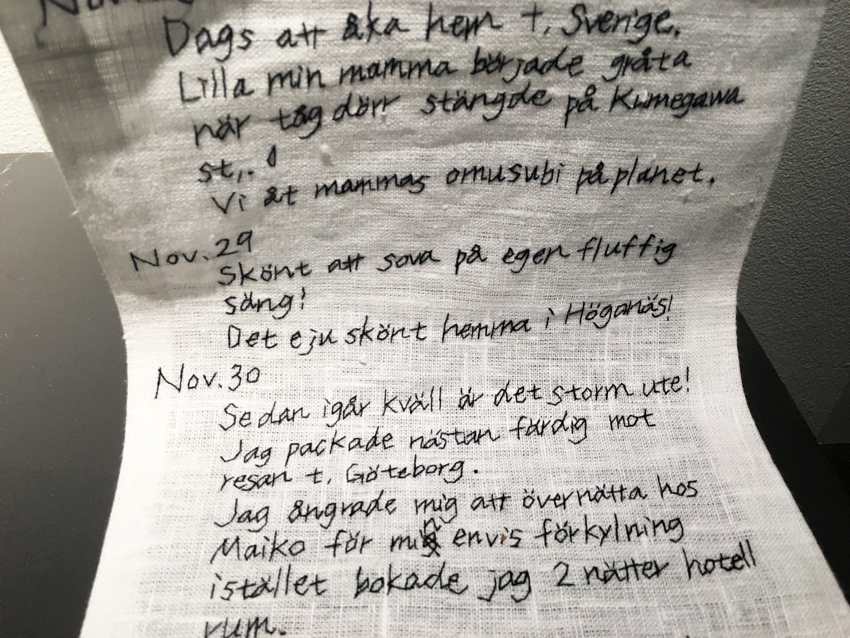 Nov.
Dags att åka hem t. Sverige.
Lilla min mamma började gråta
när tåg dörr stängde på Kumegawa
st,.
Vi åt mammas omusubi på planet.
Nov.29
Skönt att sova på egen fluffig
säng!
Det e ju skönt hemma i Höganäs!
Nov.30
Sedan igår kväll är det storm ute!
Jag packade nästan färdig mot
resan t. Göteborg.
Jag ångrade mig att övernätta hos
Maiko för min envis förkylning
istället bokade jag 2 nätter hotell
rum.